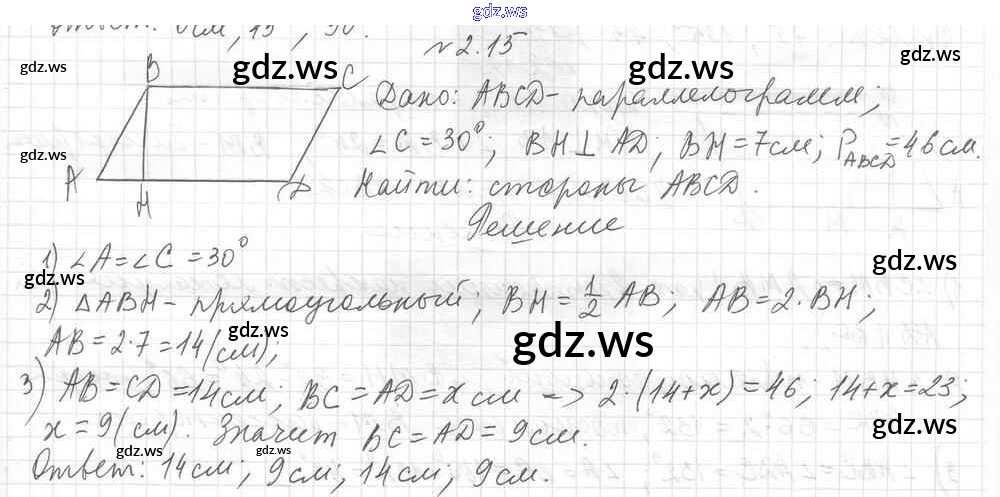 gdz.ws
Ответ: 6см, 15°, 30°.
№2.15
gdz.ws gdz.ws gdz.ws
B C
Дано: ABCD - параллелограмм;
∠C = 30°; BH ⊥ AD; BH = 7см; P_ABCD = 46 см.
A H D
Найти: стороны ABCD.
Решение
1) ∠A = ∠C = 30°
gdz.ws gdz.ws
2) △ABH - прямоугольный; BH = 1/2 AB; AB = 2·BH;
gdz.ws gdz.ws
AB = 2·7 = 14 (см);
3) AB = CD = 14 см; BC = AD = x см => 2·(14+x) = 46; 14+x = 23;
x = 9 (см). Значит BC = AD = 9 см.
gdz.ws gdz.ws gdz.ws
Ответ: 14 см; 9 см; 14 см; 9 см.